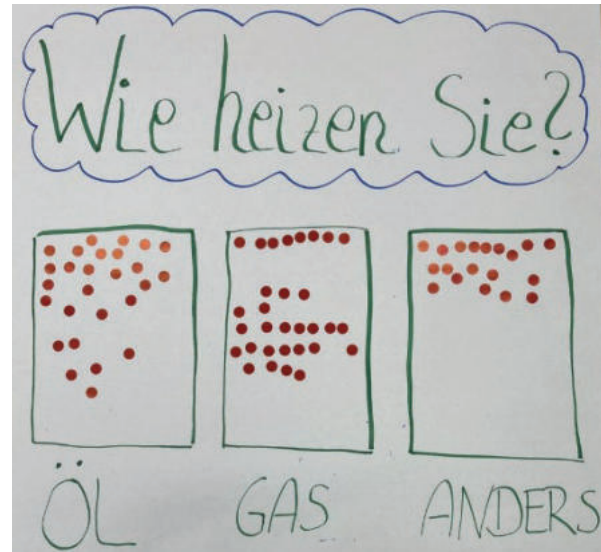 Wie heizen Sie?
ÖL GAS ANDERS